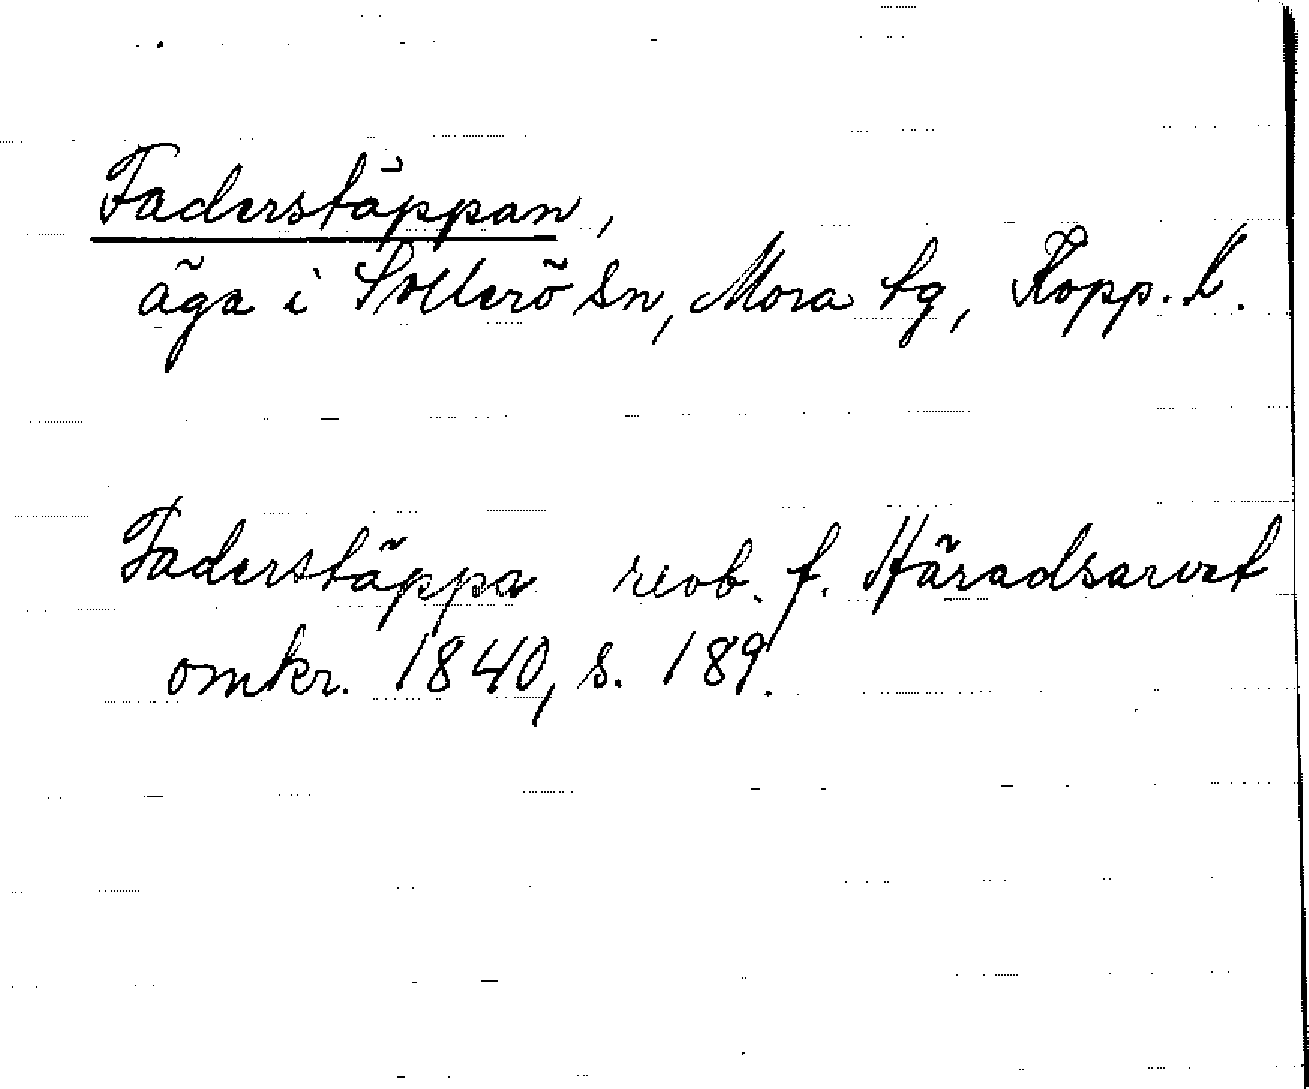 Faderstäppan,
äga i Sollerö Sn, Mora tg, Kopp. L.
Faderstäppa revb. f. Häradsarvet
omkr. 1840, s. 189.